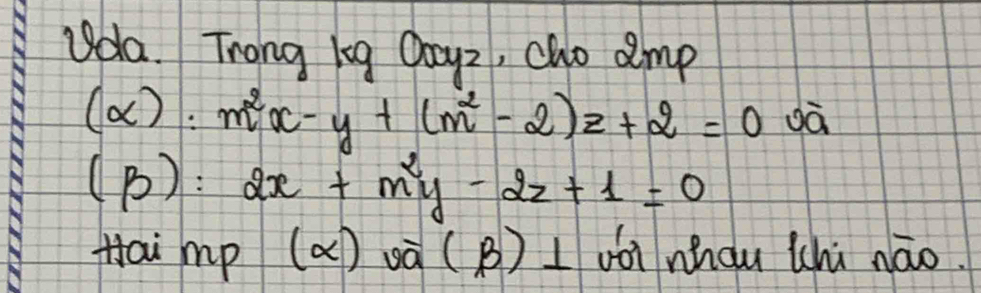 Vda. Trong kg Oxyz, cho 2mp
(α): m²x - y + (m² - 2)z + 2 = 0 và
(β): 2x + m²y - 2z + 1 = 0
Hai mp (α) và (β) ⊥ với nhau khi nào.